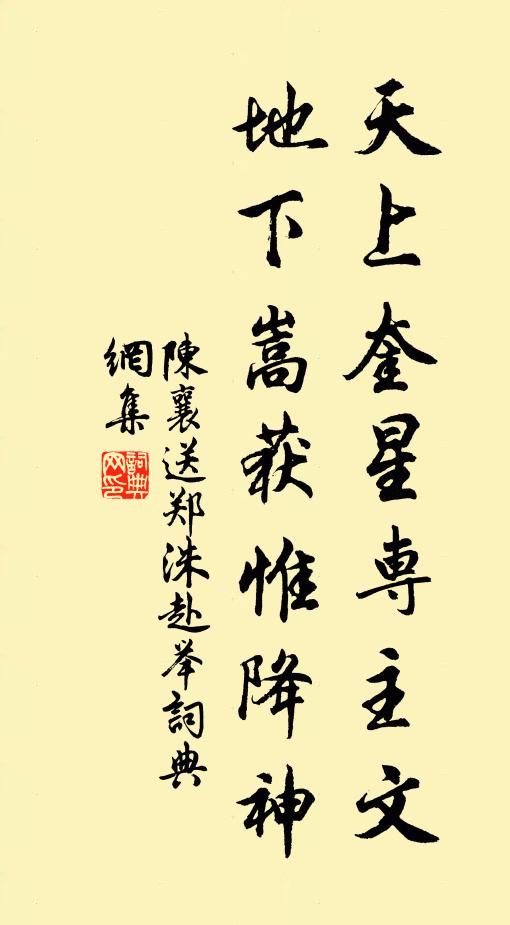 天上奎星専主文
地下嵩获惟降神
陳襄送郑洙赴举詞典
網集
詞典網印